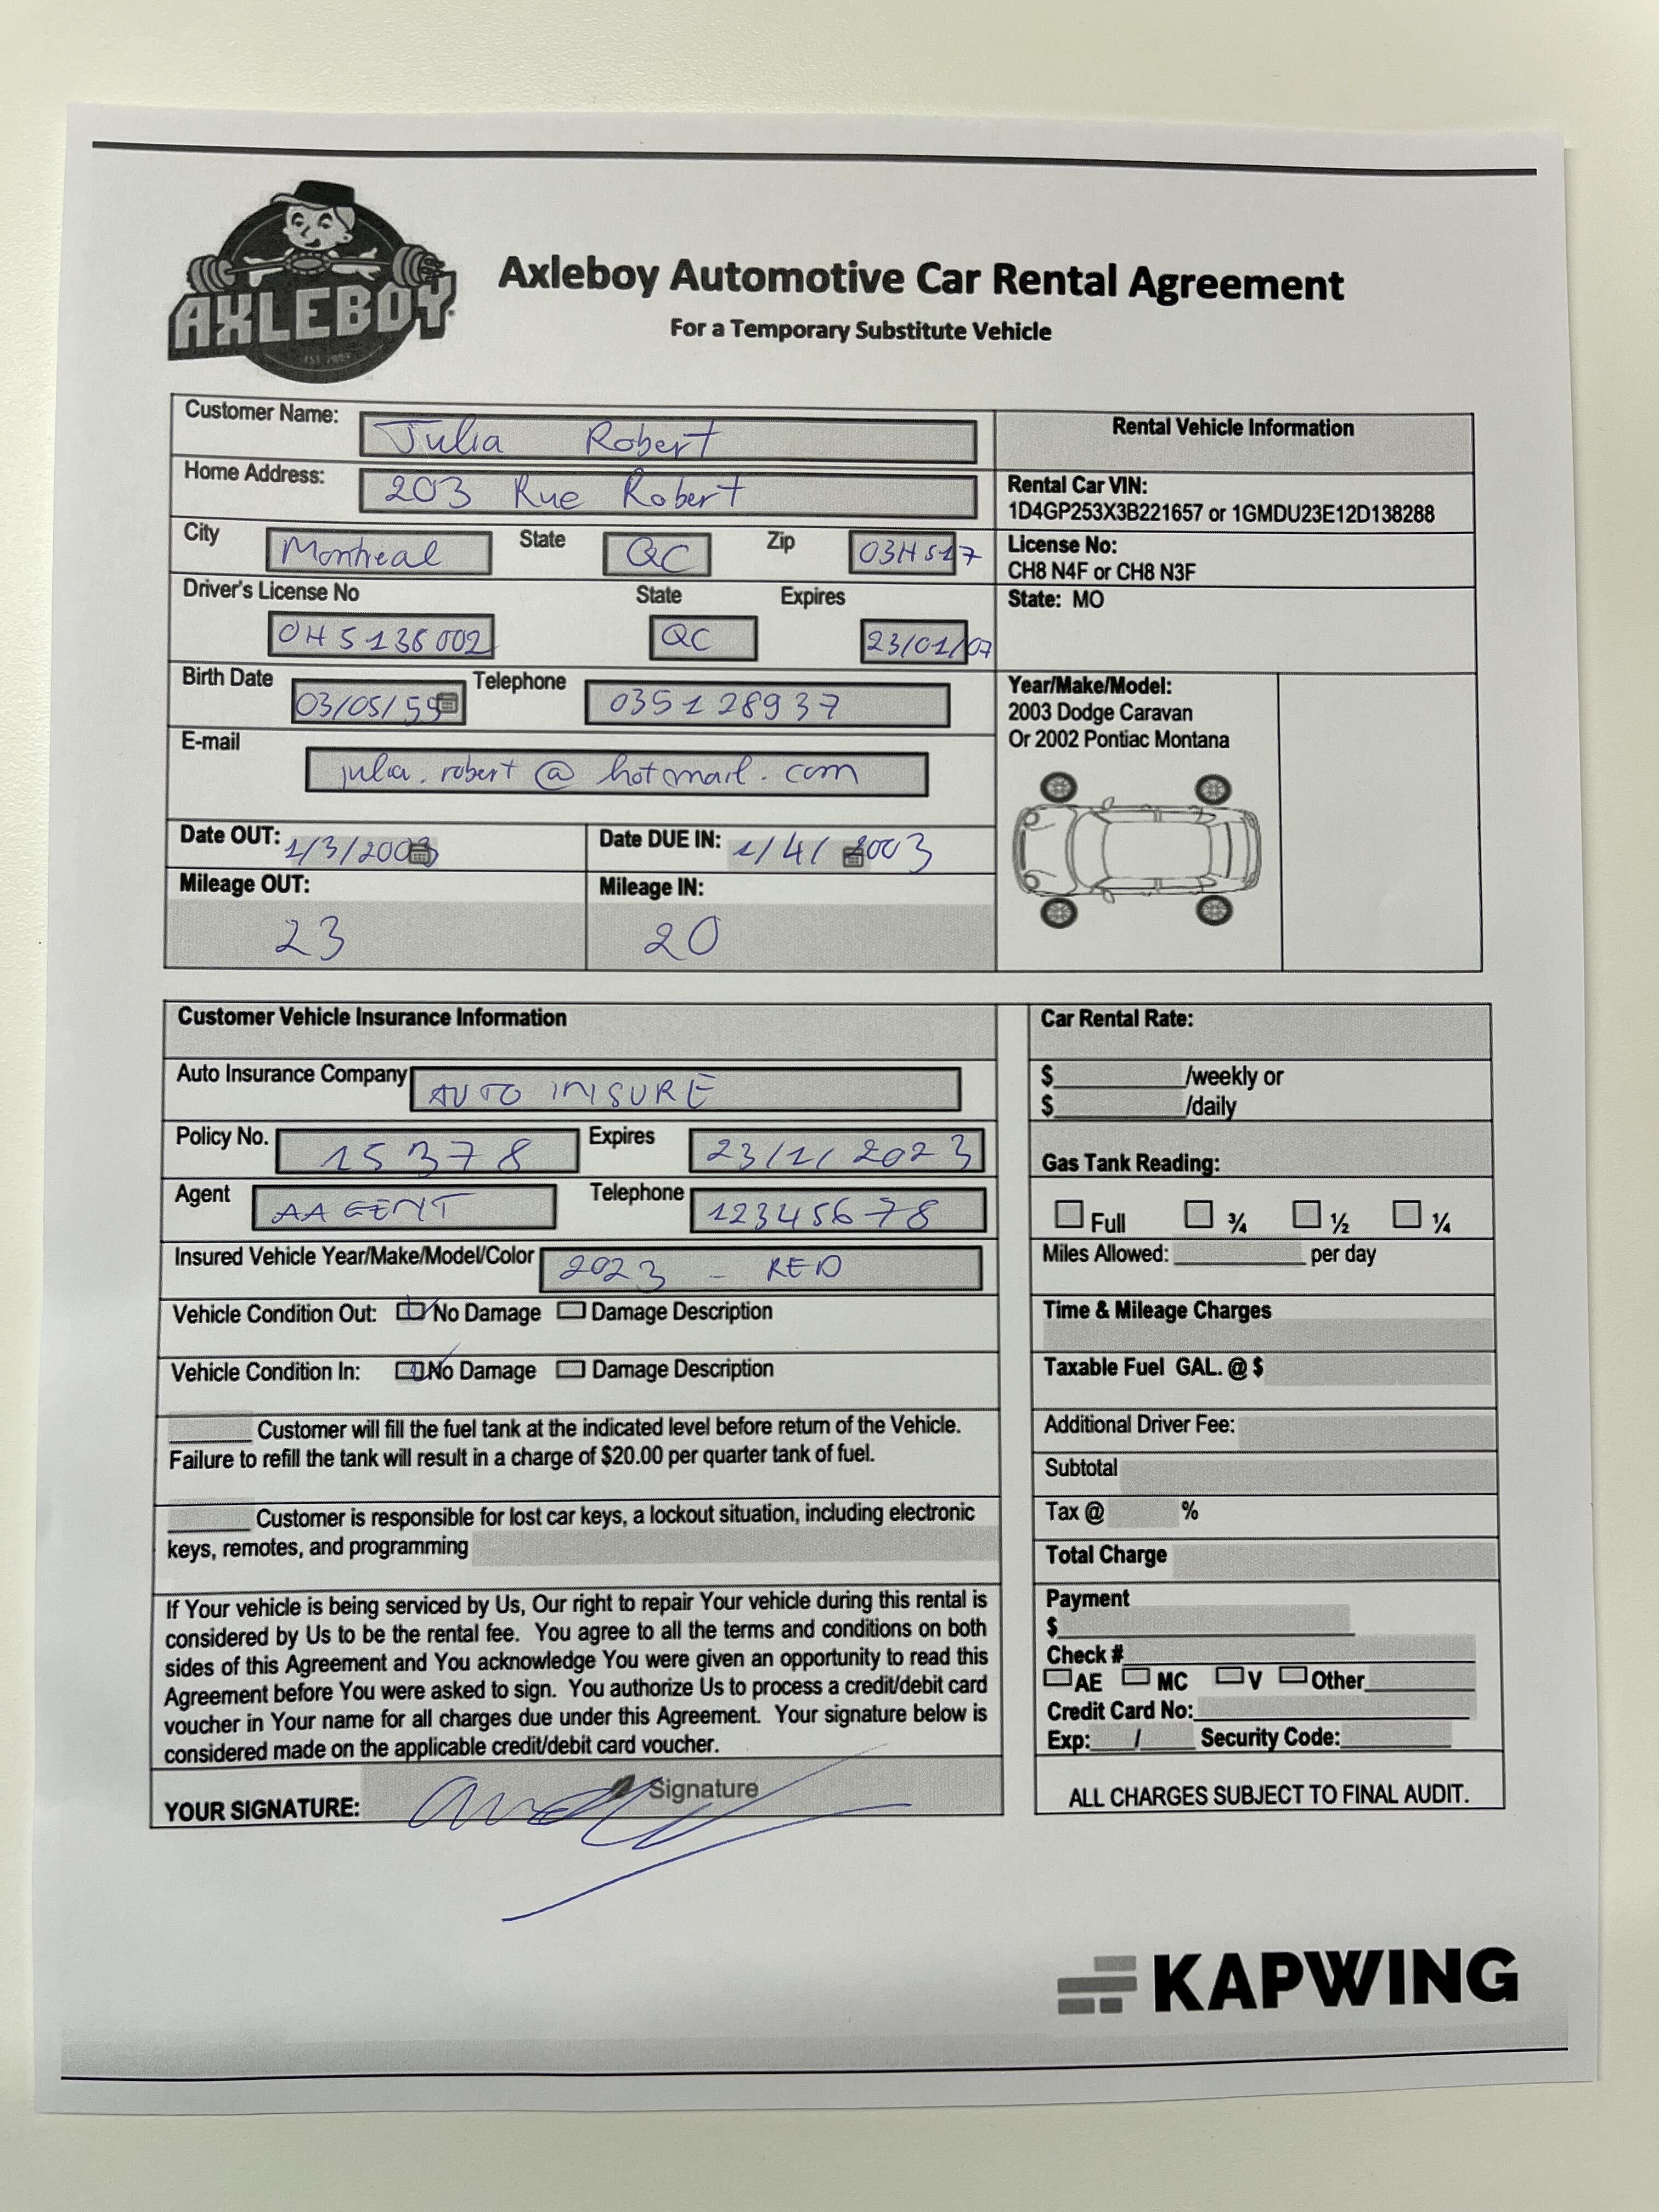 AXLEBOY
EST 2009
Axleboy Automotive Car Rental Agreement
For a Temporary Substitute Vehicle
Customer Name: Julia Robert
Home Address: 203 Rue Robert
City Montreal State QC Zip 03H517
Driver's License No State Expires
OH5138002 QC 23/01/07
Birth Date 03/05/59 Telephone 035128937
E-mail
julia.robert@hotmail.com
Date OUT: 1/3/2003 Date DUE IN: 1/4/2003
Mileage OUT: Mileage IN:
23 20
Rental Vehicle Information
Rental Car VIN:
1D4GP253X3B221657 or 1GMDU23E12D138288
License No:
CH8 N4F or CH8 N3F
State: MO
Year/Make/Model:
2003 Dodge Caravan
Or 2002 Pontiac Montana
Customer Vehicle Insurance Information
Auto Insurance Company AUTO INSURE
Policy No. 15378 Expires 23/1/2023
Agent AAGENT Telephone 12345678
Insured Vehicle Year/Make/Model/Color 2023 - RED
Vehicle Condition Out: No Damage Damage Description
Vehicle Condition In: No Damage Damage Description
Customer will fill the fuel tank at the indicated level before return of the Vehicle.
Failure to refill the tank will result in a charge of $20.00 per quarter tank of fuel.
Customer is responsible for lost car keys, a lockout situation, including electronic
keys, remotes, and programming
If Your vehicle is being serviced by Us, Our right to repair Your vehicle during this rental is
considered by Us to be the rental fee. You agree to all the terms and conditions on both
sides of this Agreement and You acknowledge You were given an opportunity to read this
Agreement before You were asked to sign. You authorize Us to process a credit/debit card
voucher in Your name for all charges due under this Agreement. Your signature below is
considered made on the applicable credit/debit card voucher.
YOUR SIGNATURE: Signature
Car Rental Rate:
$ /weekly or
$ /daily
Gas Tank Reading:
Full ¾ ½ ¼
Miles Allowed: per day
Time & Mileage Charges
Taxable Fuel GAL. @ $
Additional Driver Fee:
Subtotal
Tax @ %
Total Charge
Payment
$
Check #
AE MC V Other
Credit Card No:
Exp: / Security Code:
ALL CHARGES SUBJECT TO FINAL AUDIT.
KAPWING